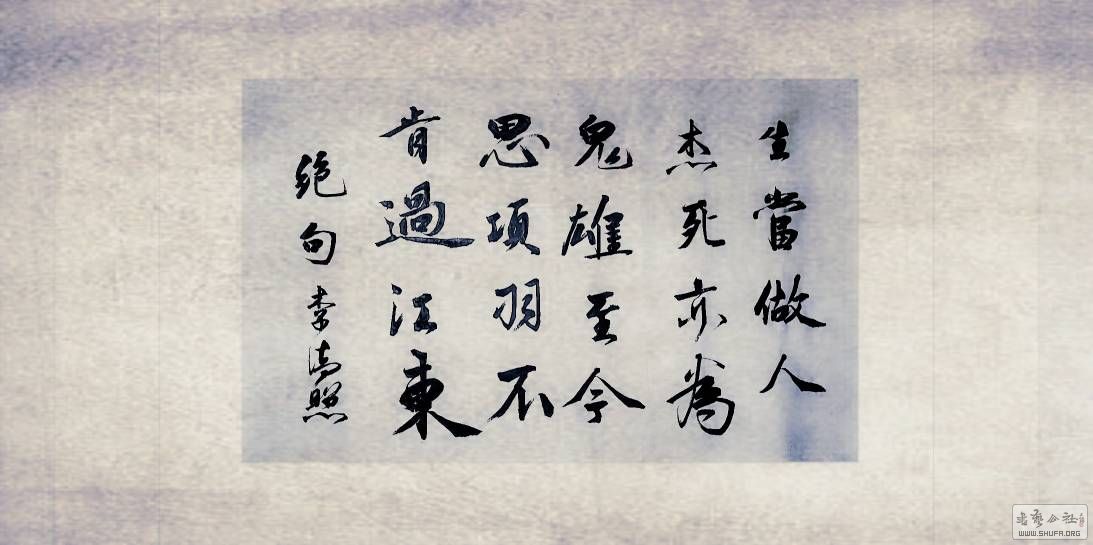 生當做人
杰死亦為
鬼雄至今
思項羽不
肯過江東
绝句 李清照
书艺公社
WWW.SHUFA.ORG